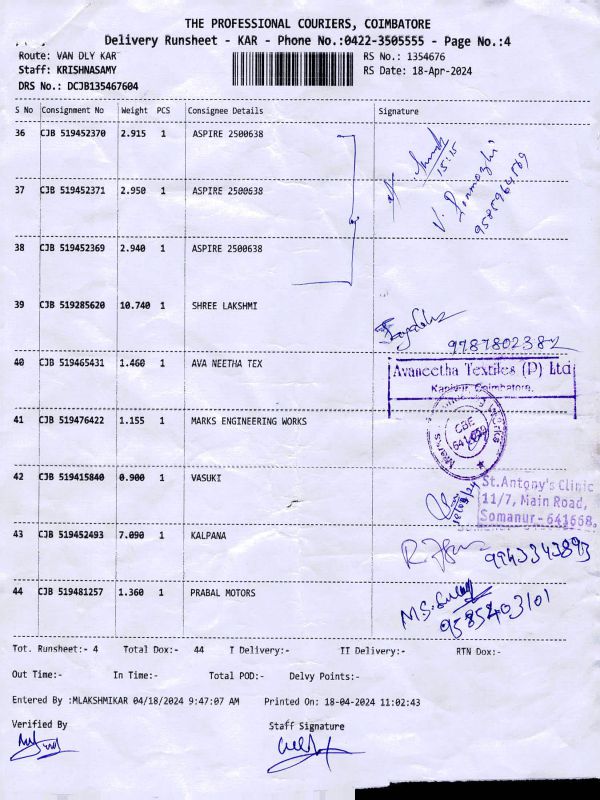 THE PROFESSIONAL COURIERS, COIMBATORE
Delivery Runsheet - KAR - Phone No.:0422-3505555 - Page No.:4
Route: VAN DLY KAR
RS No.: 1354676
Staff: KRISHNASAMY
RS Date: 18-Apr-2024
DRS No.: DCJB135467604
S No Consignment No Weight PCS Consignee Details Signature
36 CJB 519452370 2.915 1 ASPIRE 2500638
15:15
37 CJB 519452371 2.950 1 ASPIRE 2500638
38 CJB 519452369 2.940 1 ASPIRE 2500638
39 CJB 519285620 10.740 1 SHREE LAKSHMI
9787802382
40 CJB 519465431 1.460 1 AVA NEETHA TEX
Avaneetha Textiles (P) Ltd
Coimbatore.
41 CJB 519476422 1.155 1 MARKS ENGINEERING WORKS
CBE
42 CJB 519415840 0.900 1 VASUKI
St.Antony's Clinic
11/7, Main Road,
Somanur - 641668.
43 CJB 519452493 7.090 1 KALPANA
9943343893
44 CJB 519481257 1.360 1 PRABAL MOTORS
9585403101
Tot. Runsheet:- 4 Total Dox:- 44 I Delivery:- II Delivery:- RTN Dox:-
Out Time:- In Time:- Total POD:- Delvy Points:-
Entered By :MLAKSHMIKAR 04/18/2024 9:47:07 AM Printed On: 18-04-2024 11:02:43
Verified By Staff Signature